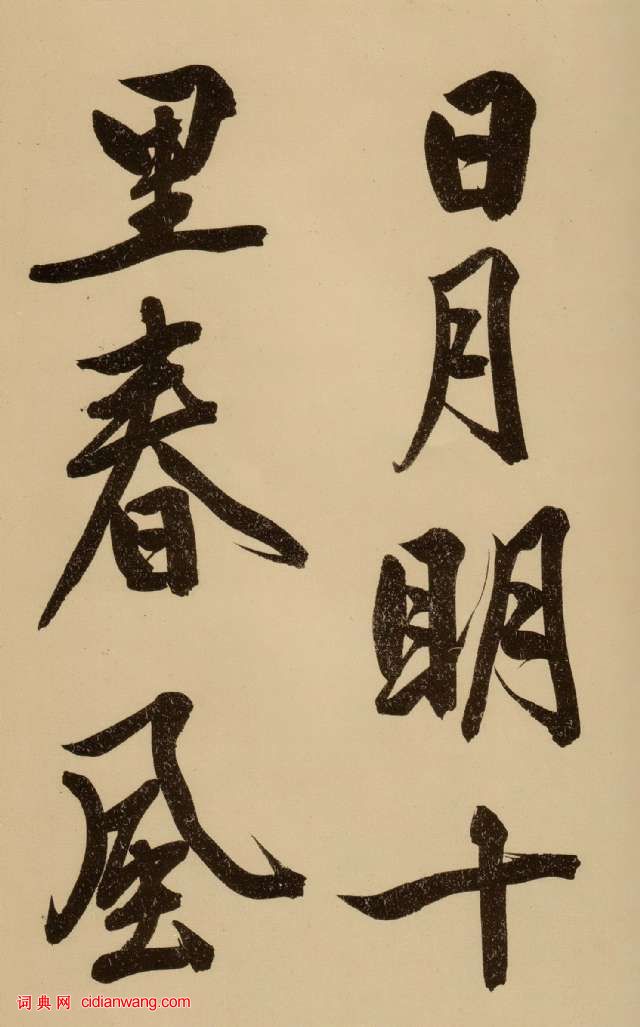 日月明十
里春風
词典网 cidianwang.com